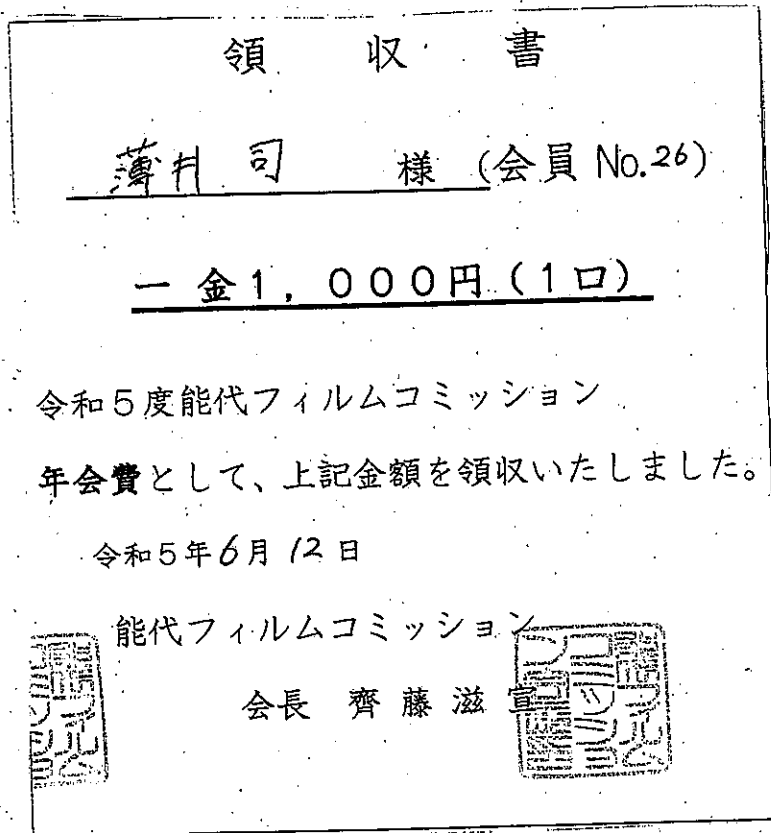 領 収 書
薄井 司 様 (会員 No.26)
一 金1,000円(1口)
令和5度能代フィルムコミッション
年会費として、上記金額を領収いたしました。
令和5年6月12日
能代フィルムコミッション
会長 齊藤滋宣